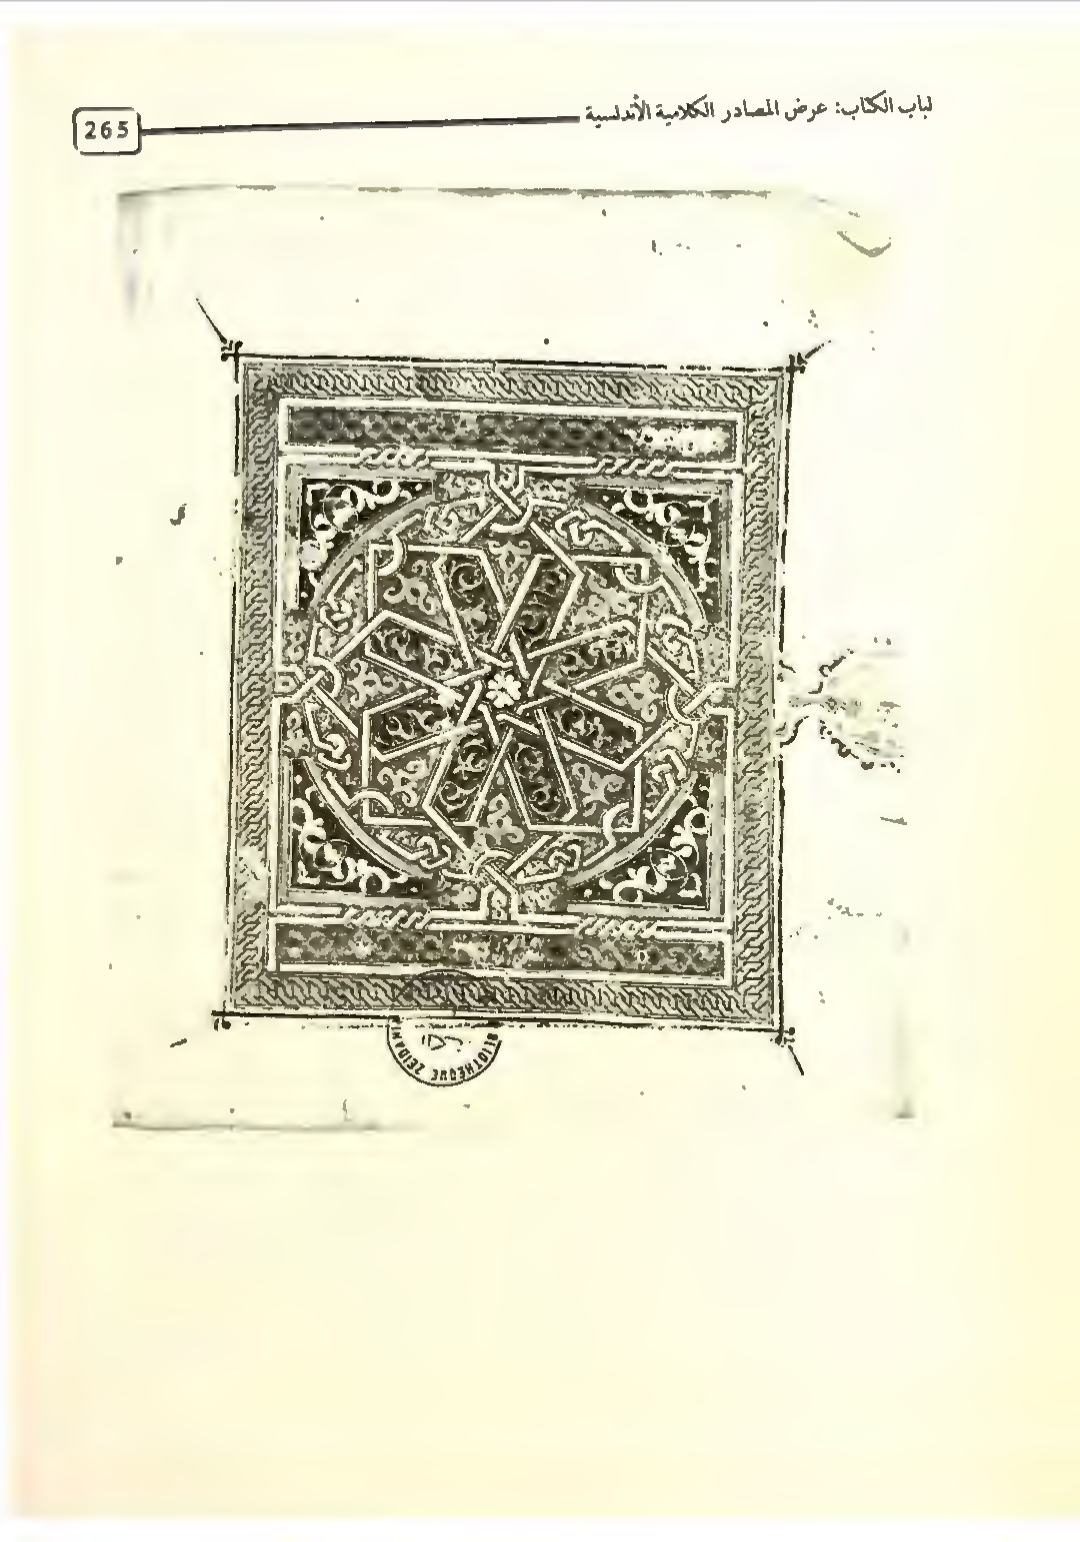 لباب الكتاب: عرض المصادر الكلامية الأندلسية
265
BLIOTHEQUE ZEIDAN